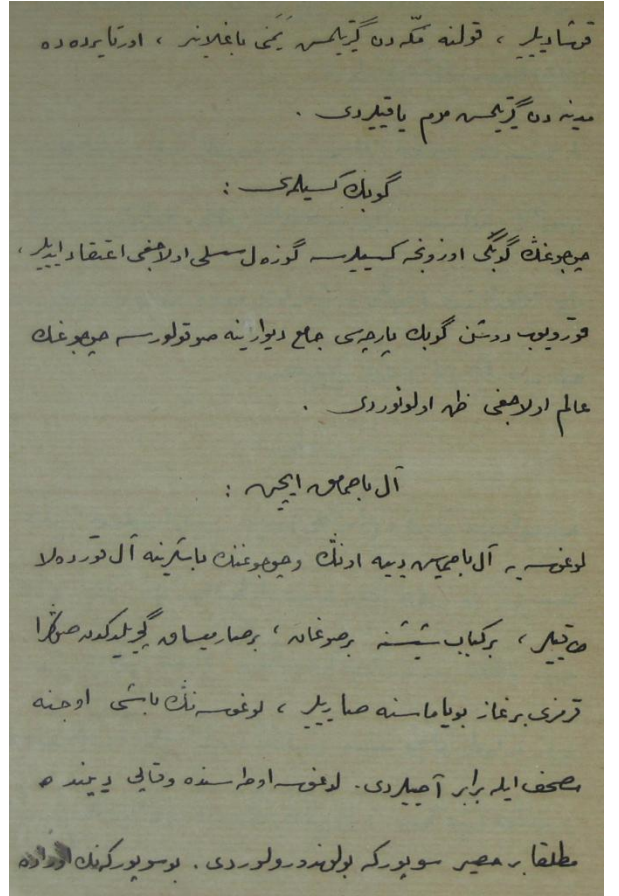 قوشاديلر ، قولنه مكه دن گتيرلمش يمنى باغلانير ، اورتا يرده ده
مدينه دن گتيرلمش موم ياقيلردى .
گوبك كسيلمه‌سى :
چوجوغڭ گوبگى اوزونجه كسيليرسه گوزه ل سسلى اولاجغى اعتقاد ايديلير ،
قورويوب دوشن گوبك پارچه‌سى جامع ديوارينه صوقولورسه چوجوغڭ
عالم اولاجغى ظن اولونوردى .
آل باصماق ايچين :
لوغوسه يى آل باصماسين دييه اونڭ و چوجوغنڭ باشلرينه آل قوردهلا
طاقيلير ، بر كباب شيشنه بر صوغان ، بر صاريمساق گچيريلدكدن صوڭرا
قرمزى بر غاز بوياماسنه صاريلير ، لوغوسه نڭ باشى اوجنه
مصحف ايله برابر آصيلردى . لوغوسه اوطه سنده وقاپى ديبنده
مطلقا بر حصير سوپوركه بولوندورولوردى . بو سوپوركه نڭ اوراده